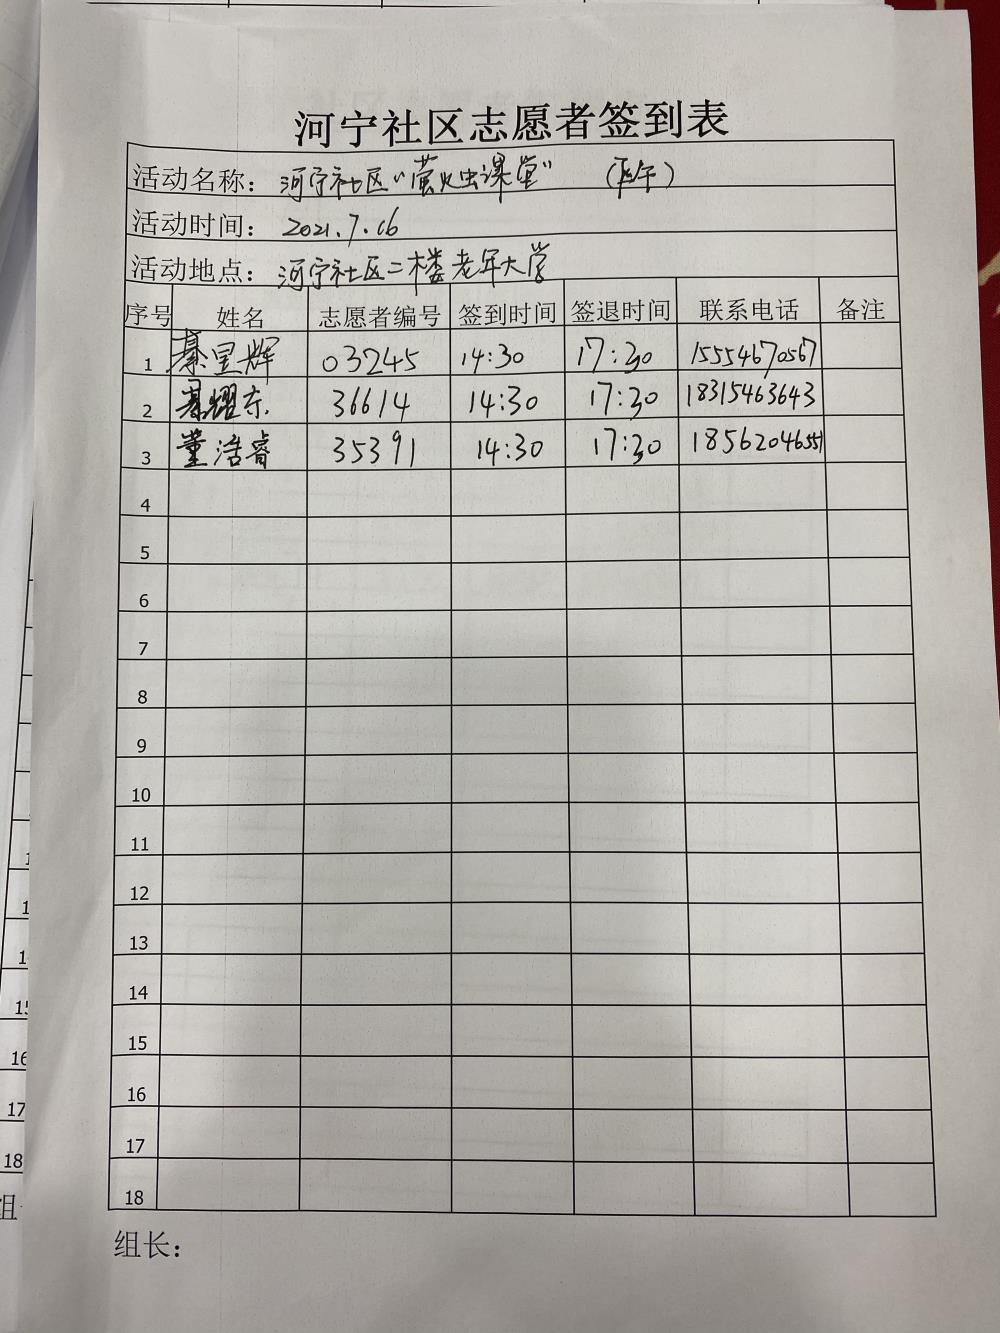 河宁社区志愿者签到表
活动名称：河宁社区“萤火虫课堂” （下午）
活动时间：2021.7.16
活动地点：河宁社区二楼老年大学
序号 姓名 志愿者编号 签到时间 签退时间 联系电话 备注
1 綦星辉 03245 14:30 17:30 15554670567
2 綦耀东 36614 14:30 17:30 18315463643
3 董浩睿 35391 14:30 17:30 18562046551
4
5
6
7
8
9
10
11
12
13
14
15
16
17
18
组长：
15
16
17
18
组